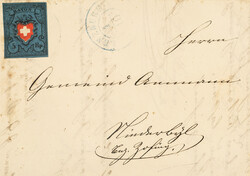 Herrn
Gemeind Ammann
Niederwyl
Bez. Zofing.